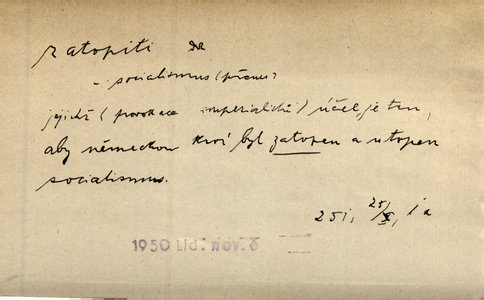 zatopiti
– socialismus (přenes.
jejichž (provokace imperialistů) účel je ten,
aby německou krví byl zatopen a utopen
socialismus.
251, 25/X, 1a
1950 Lid. nov. 6